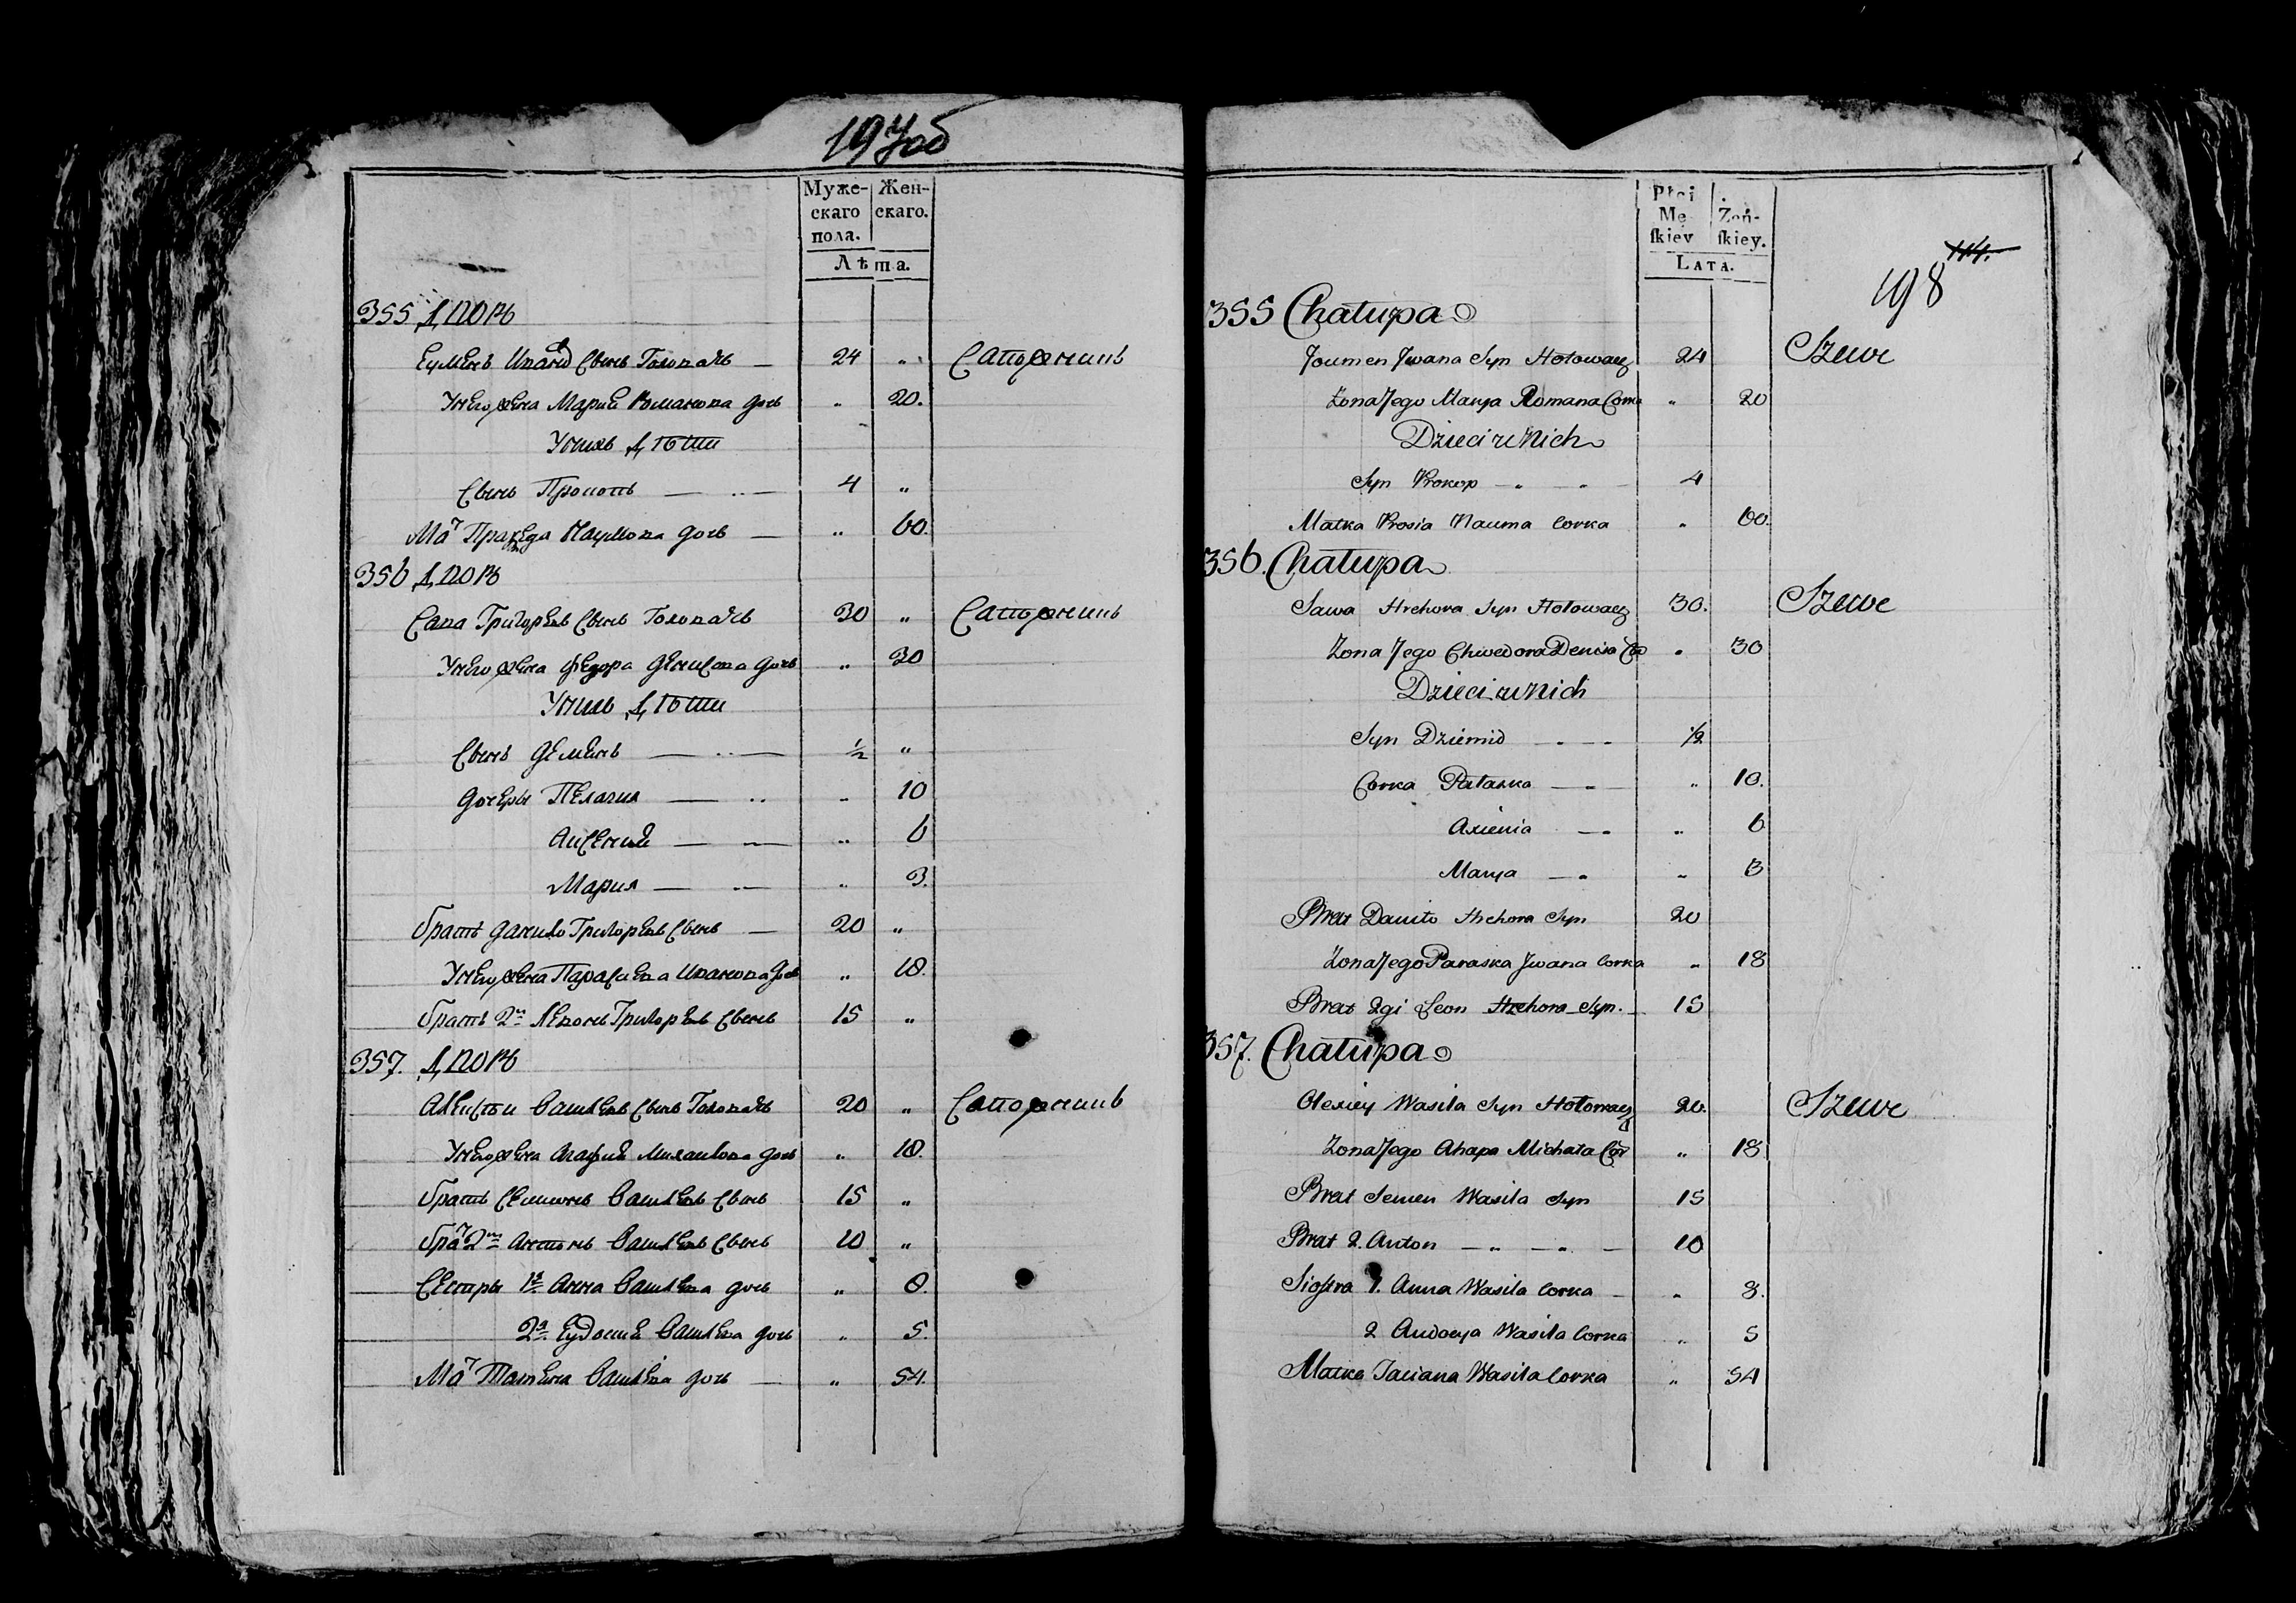 197об
Муже-
скаго
пола.
Жен-
скаго.
Лѣта.
355 Дворъ
Еуменъ Ивановъ Сынъ Головачъ — 24 „ Сапожникъ
У него жена Мария Романова дочь „ 20.
У нихъ Дѣти
Сынъ Прокопъ — 4 „
Мать Пракседа Наумова дочь — „ 60.
356 Дворъ
Сава Григорьевъ Сынъ Головачъ 30 „ Сапожникъ
У него жена Федора Денисова дочь „ 30
У нихъ Дѣти
Сынъ Деменъ — 1/2 „
Дочеры Пелагия — „ 10
Аксения — „ 6
Мария — „ 3.
братъ Данило Григорьевъ Сынъ — 20 „
У него жена Парасиева Иванова дочь „ 18.
братъ 2й Левонъ Григорьевъ Сынъ 15 „
357. Дворъ
Алексѣи Васильевъ Сынъ Головачъ 20 „ Сапожникъ
У него жена Агафия Михаилова дочь „ 18.
братъ Семионъ Васильевъ Сынъ 15 „
братъ 2й Антонъ Васильевъ Сынъ 10 „
Сестры 1я Анна Васильева дочь „ 8.
2я Еудокия Васильева дочь „ 5.
Мать Татьяна Васильева дочь — „ 54.
Płci
Mę
skiey
Żeń-
skiey.
LATA.
114.
198
355 Chałupa
Joumen Jwana Syn Hołowacz 24 Szewc
Zona Jego Marya Romana Corka „ 20
Dzieci u Nich
Syn Prokop — „ — 4
Matka Prosia Nauma Corka „ 60.
356. Chałupa
Sawa Hrehora Syn Hołowacz 30. Szewc
Zona Jego Chwedora Denisa Cor „ 30
Dzieci u Nich
Syn Dziemid — 1/2
Corka Pałaska — „ 10.
Axienia — „ 6
Marya — „ 3
Brat Daniło Hrehora Syn 20
Zona Jego Paraska Jwana Corka „ 18
Brat 2gi Leon Hrehora Syn. 15
357. Chałupa
Olexiey Wasila Syn Hołowacz 20. Szewc
Zona Jego Ahapa Michała Cor „ 18
Brat Semen Wasila Syn 15
Brat 2. Anton — „ — „ — 10
Siostra 1. Anna Wasila Corka — „ 8.
2 Audocya Wasila Corka „ 5
Matka Taciana Wasila Corka „ 54